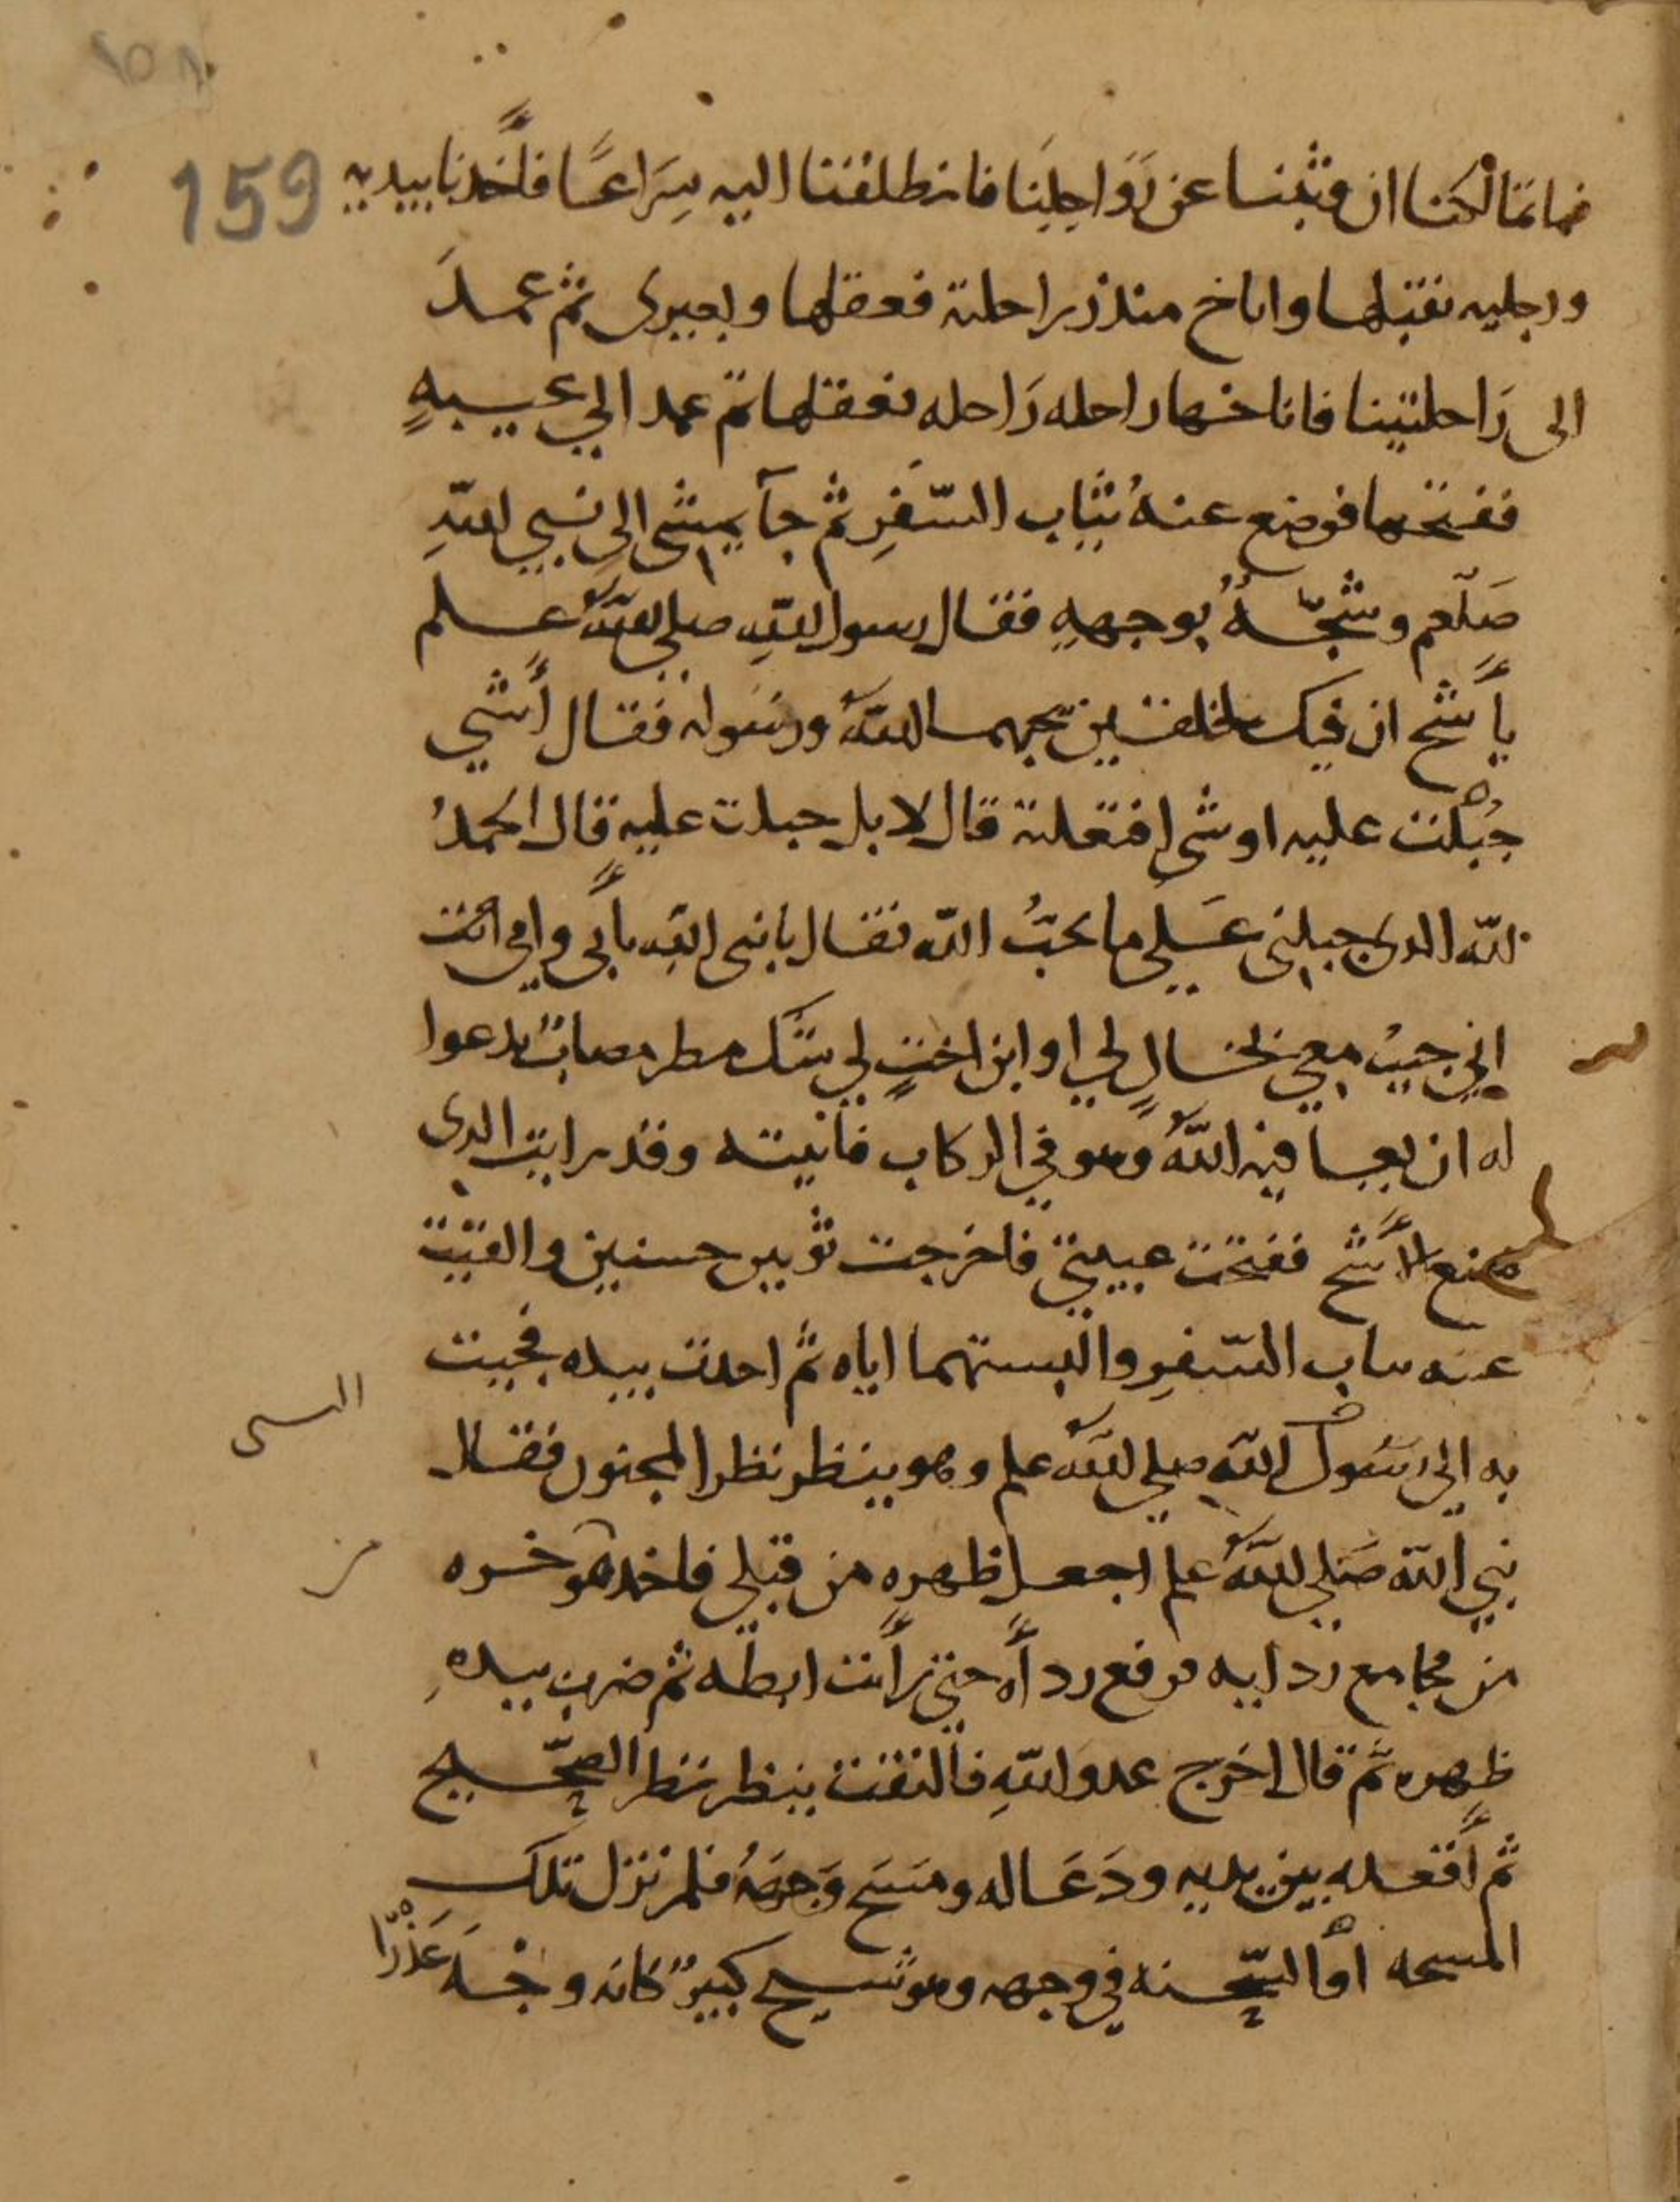 ١٥٨
159
فما تمالكنا ان وثبنا عن رَوَاحِلِنَا فانطلقنا اليه سِرَاعًا فأخذنا بيديه
ورجليه نقبلها واناخ منذر راحلته فعقلها وبعيرى ثم عمدَ
الى رَاحلتينا فاناخها راحله رَاحله فعقلها ثم عمد الي عيبهِ
ففتحها فوضع عنهُ ثياب السّفرِ ثم جآ يمشى الى نبي اللهِ
صَلّعم وشجّهُ بوجههِ فقال رسول اللهِ صلى اللهُ علم
يأشج ان فيك لخلقين يحبهما اللهُ ورسَوله فقال أشي
جُبلت عليه او شى افتعلته قال لا بل جبلت عليه قال الحمدُ
لله الدى جبلنى عَلي ما يحبُ الله فقال يا نبى الله بأبي وامي انت
اني جيتُ معي بخالٍ لي او ابن اختٍ لي شك مطر مصابٌ يدعوا
له ان يعافيه اللهُ وهو في الركاب فاتيته وقد رايت الدى
صنع الأشج ففتحت عيبتي فاخرجت ثوبين حسنين والقيت
عنه ساب السّفرِ والبستهما اياه ثم احدت بيده فجيت
به الي رسُول اللهِ صلي اللهُ علم وهو ينظر نظر المجنون فقال
نبي الله صَلي اللهُ علم اجعل ظهره من قبلي فاخد موخره
من مجامع ردايه فرفع رداَه حتي رأيت ابطه ثم ضرب بيدهِ
ظهره ثم قال اخرج عدو اللهِ فالتفت ينظر نظر الصّحيح
ثم أقعده بين يديه ودَعَا له ومَسَح وَجهَهُ فلم تزل تلك
المسحه او السّحنه في وجهه وهو شيخ كبيرٌ كانه وجه عَذْرَا
السى
من